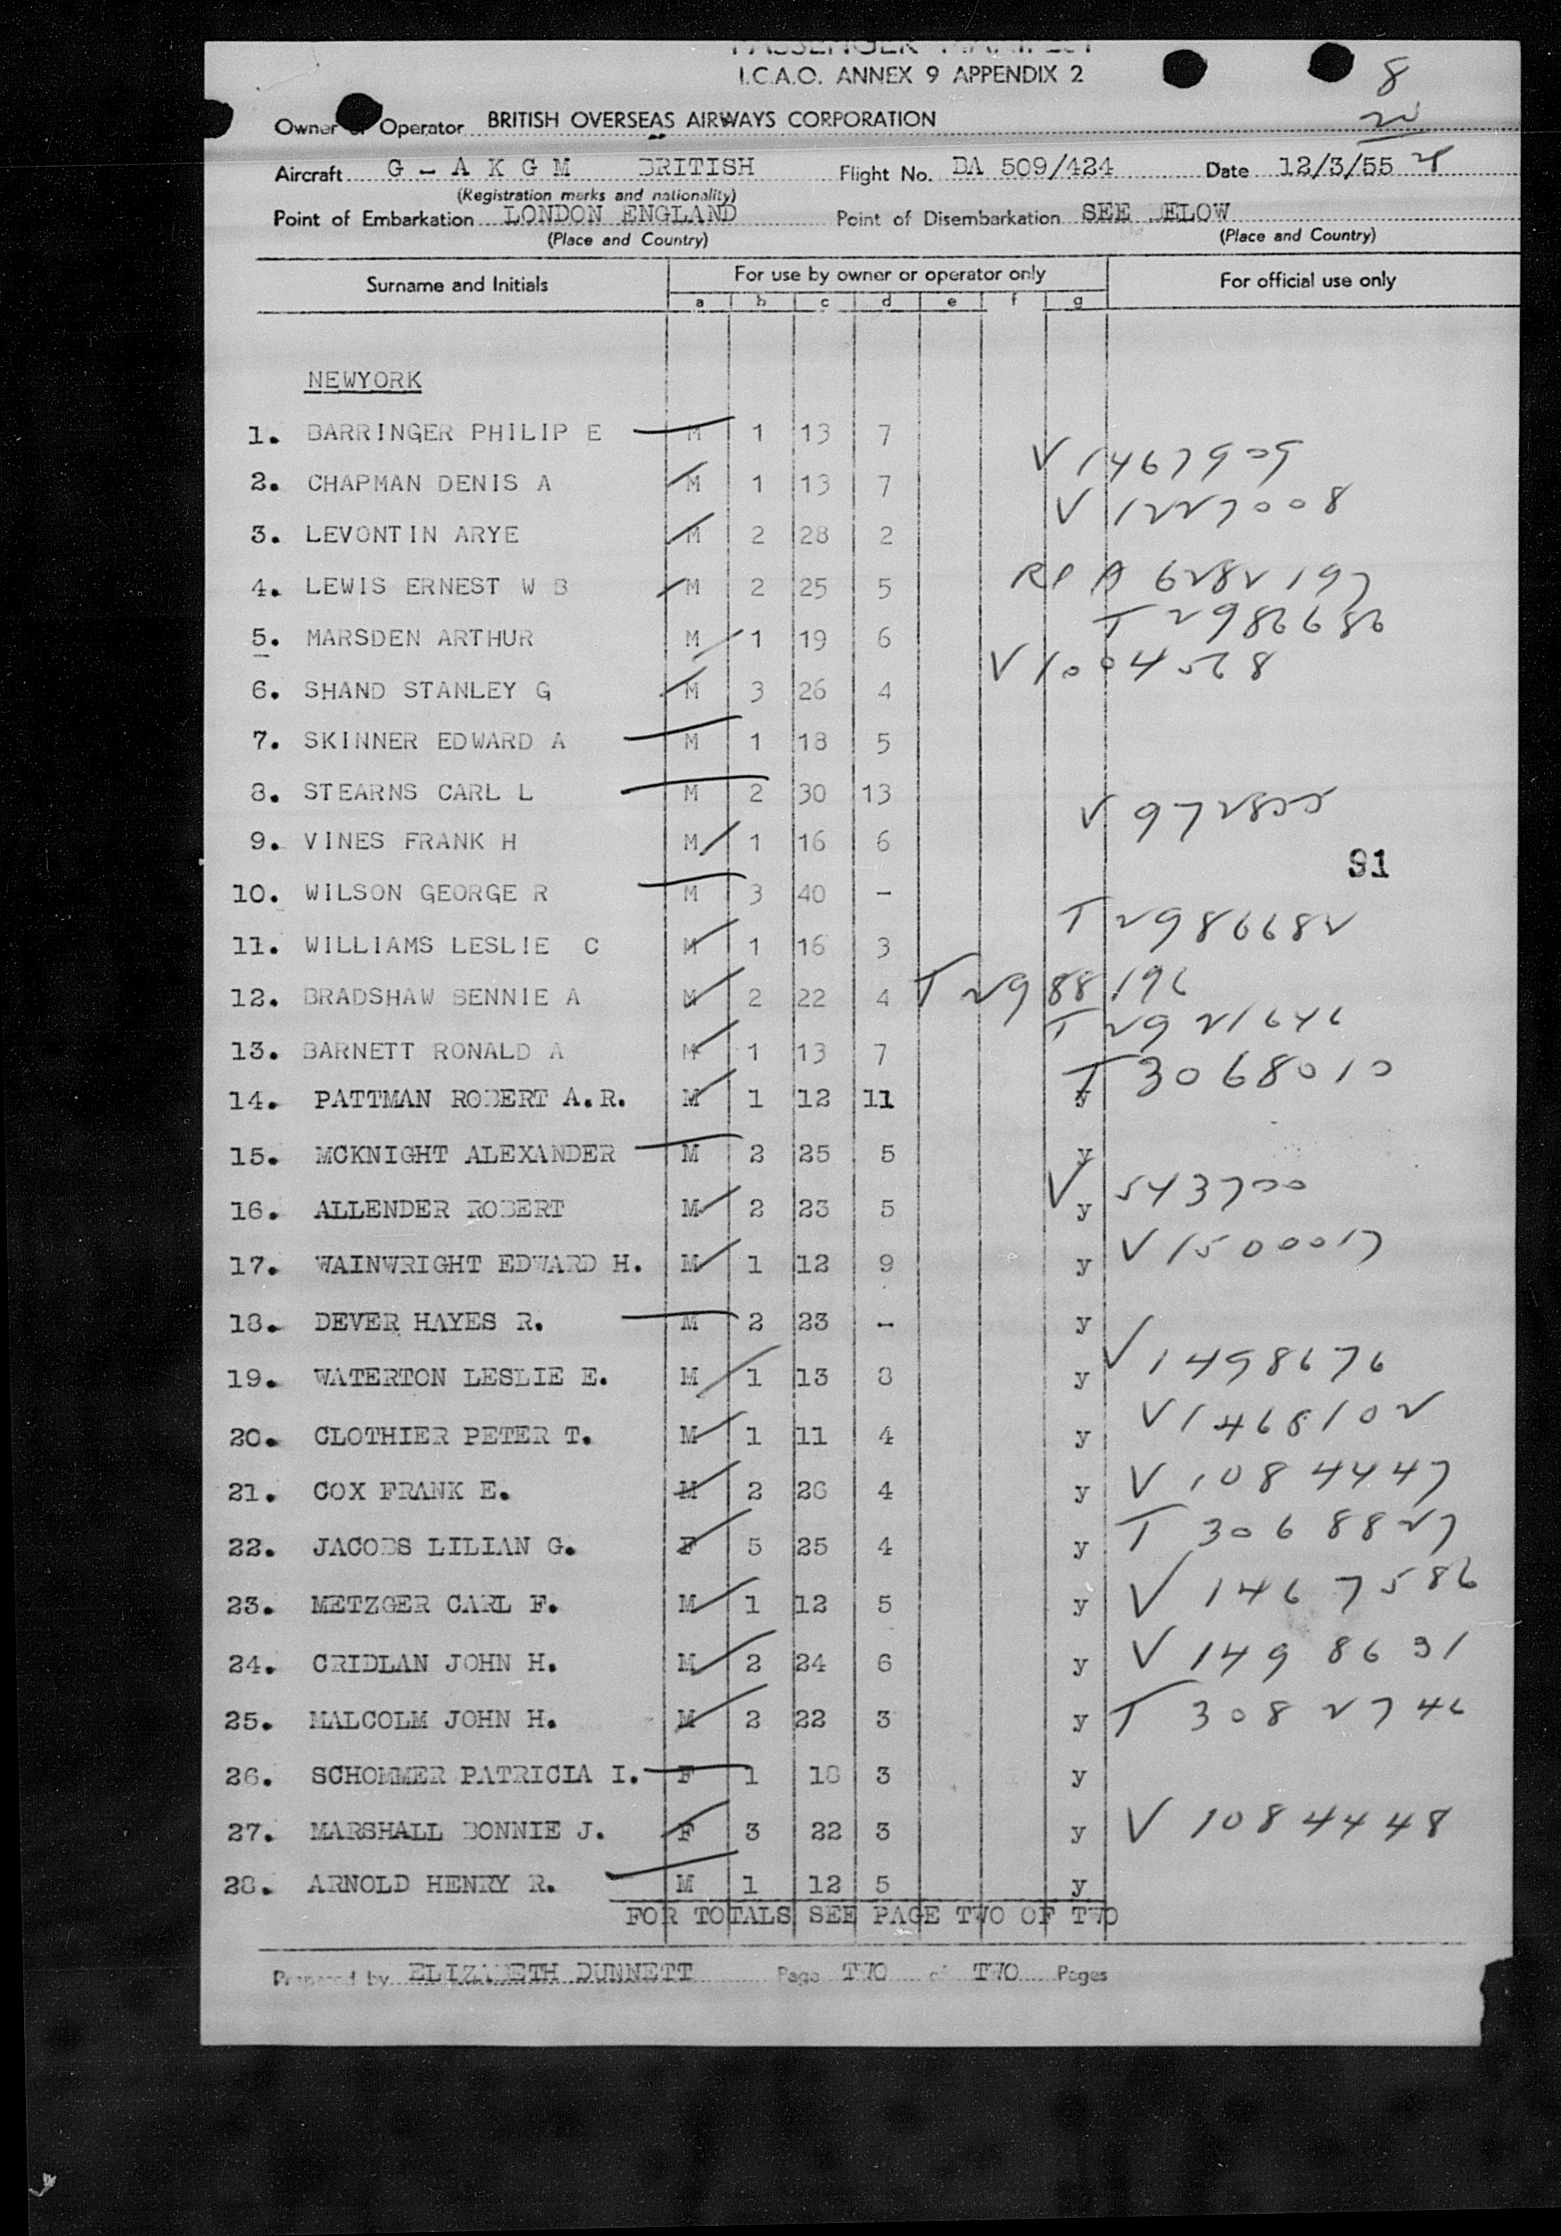 PASSENGER MANIFEST
I.C.A.O. ANNEX 9 APPENDIX 2
8
20
Owner or Operator BRITISH OVERSEAS AIRWAYS CORPORATION
Aircraft G - A K G M BRITISH Flight No. BA 509/424 Date 12/3/55
(Registration marks and nationality)
Point of Embarkation LONDON ENGLAND Point of Disembarkation SEE BELOW
(Place and Country) (Place and Country)
Surname and Initials For use by owner or operator only For official use only
a b c d e f g
NEWYORK
1. BARRINGER PHILIP E M 1 13 7
V 1467909
2. CHAPMAN DENIS A M 1 13 7
V 1227008
3. LEVONTIN ARYE M 2 28 2
4. LEWIS ERNEST W B M 2 25 5 RP A 6282197
T 2986686
5. MARSDEN ARTHUR M 1 19 6
V 1004528
6. SHAND STANLEY G M 3 26 4
7. SKINNER EDWARD A M 1 18 5
8. STEARNS CARL L M 2 30 13
V 972855
9. VINES FRANK H M 1 16 6
91
10. WILSON GEORGE R M 3 40 -
T 2986682
11. WILLIAMS LESLIE C M 1 16 3
12. BRADSHAW BENNIE A M 2 22 4 T 2988196
T 2921646
13. BARNETT RONALD A M 1 13 7
T 3068010
14. PATTMAN ROBERT A.R. M 1 12 11 y
15. MCKNIGHT ALEXANDER M 2 25 5 y
16. ALLENDER ROBERT M 2 23 5 y V 543700
17. WAINWRIGHT EDWARD H. M 1 12 9 y V 1500017
18. DEVER HAYES R. M 2 23 - y
19. WATERTON LESLIE E. M 1 13 8 y V 1498676
20. CLOTHIER PETER T. M 1 11 4 y V 1468102
21. COX FRANK E. M 2 26 4 y V 1084447
22. JACOBS LILIAN G. F 5 25 4 y T 3068827
23. METZGER CARL F. M 1 12 5 y V 1467586
24. CRIDLAN JOHN H. M 2 24 6 y V 1498631
25. MALCOLM JOHN H. M 2 22 3 y T 3082746
26. SCHOMMER PATRICIA I. F 1 18 3 y
27. MARSHALL BONNIE J. F 3 22 3 y V 1084448
28. ARNOLD HENRY R. M 1 12 5 y
FOR TOTALS SEE PAGE TWO OF TWO
Prepared by ELIZABETH DUNNETT Page TWO of TWO Pages